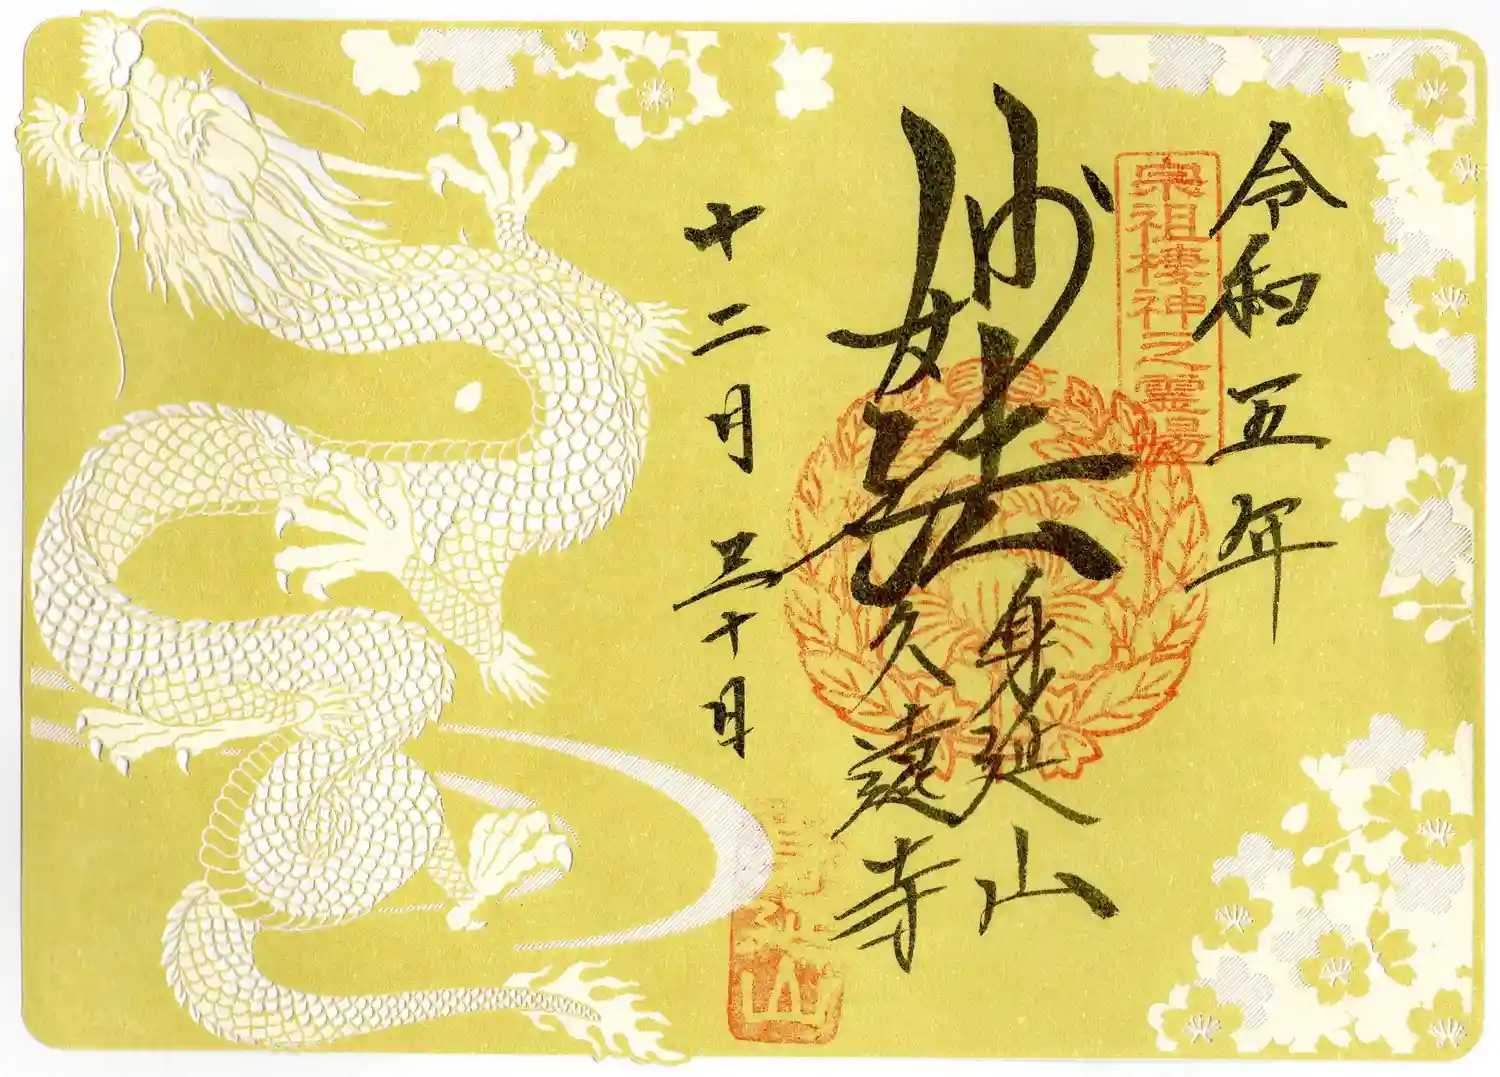 令和五年
宗祖棲神之霊場
妙法
身延山
久遠寺
十二月三十日